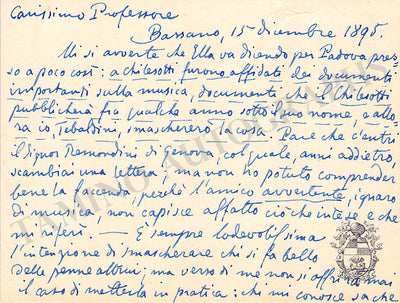 Carissimo Professore
Bassano, 15 dicembre 1895.
Mi si avverte che Ella va dicendo per Padova pres-
so a poco così: a Chilesotti furono affidati dei documenti
importanti sulla musica, documenti che il Chilesotti
pubblicherà fra qualche anno sotto il suo nome, e allo-
ra io, Tebaldini, smaschererò la cosa. Pare che c'entri
il signor Remondini di Genova, col quale, anni addietro,
scambiai una lettera; ma non ho potuto comprender
bene la faccenda, perchè l'amico avvertente, ignaro
di musica, non capisce affatto ciò che intese e che
mi riferì. — È sempre lodevolissima
l'intenzione di smascherare chi si fa bello
delle penne altrui; ma verso di me non si affrirà mai
il caso di metterla in pratica: chi mi conosce sa che
TAMINO AUTOGRAPHS